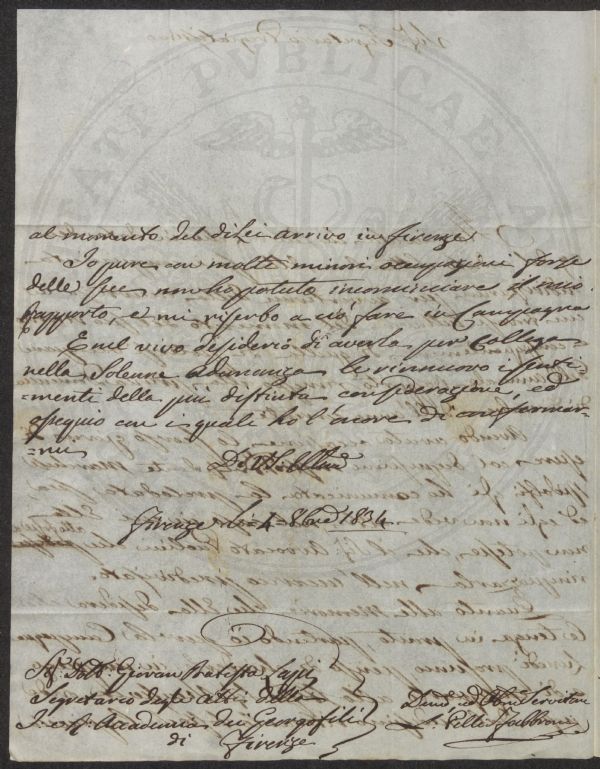 al momento del di Lei arrivo in Firenze
Io pure con molte minori occupazioni forse
delle sue non ho potuto incominciare il mio
Rapporto, e mi riserbo a ciò fare in Campagna
E nel vivo desiderio di averla per Collega
nella Solenne Adunanza le rinnuovo i senti-
-menti della più distinta considerazione, ed
ossequio con i quali ho l'onore di confermar-
-mi
Di VS. Illma
Firenze li 4 8bre 1834
Sig. Dott. Giovan Batista Lapi
Segretario degli Atti della
I. e R. Accademia dei Georgofili
di Firenze
Devmo ed Obbmo Servitore
Pelli Fabbroni